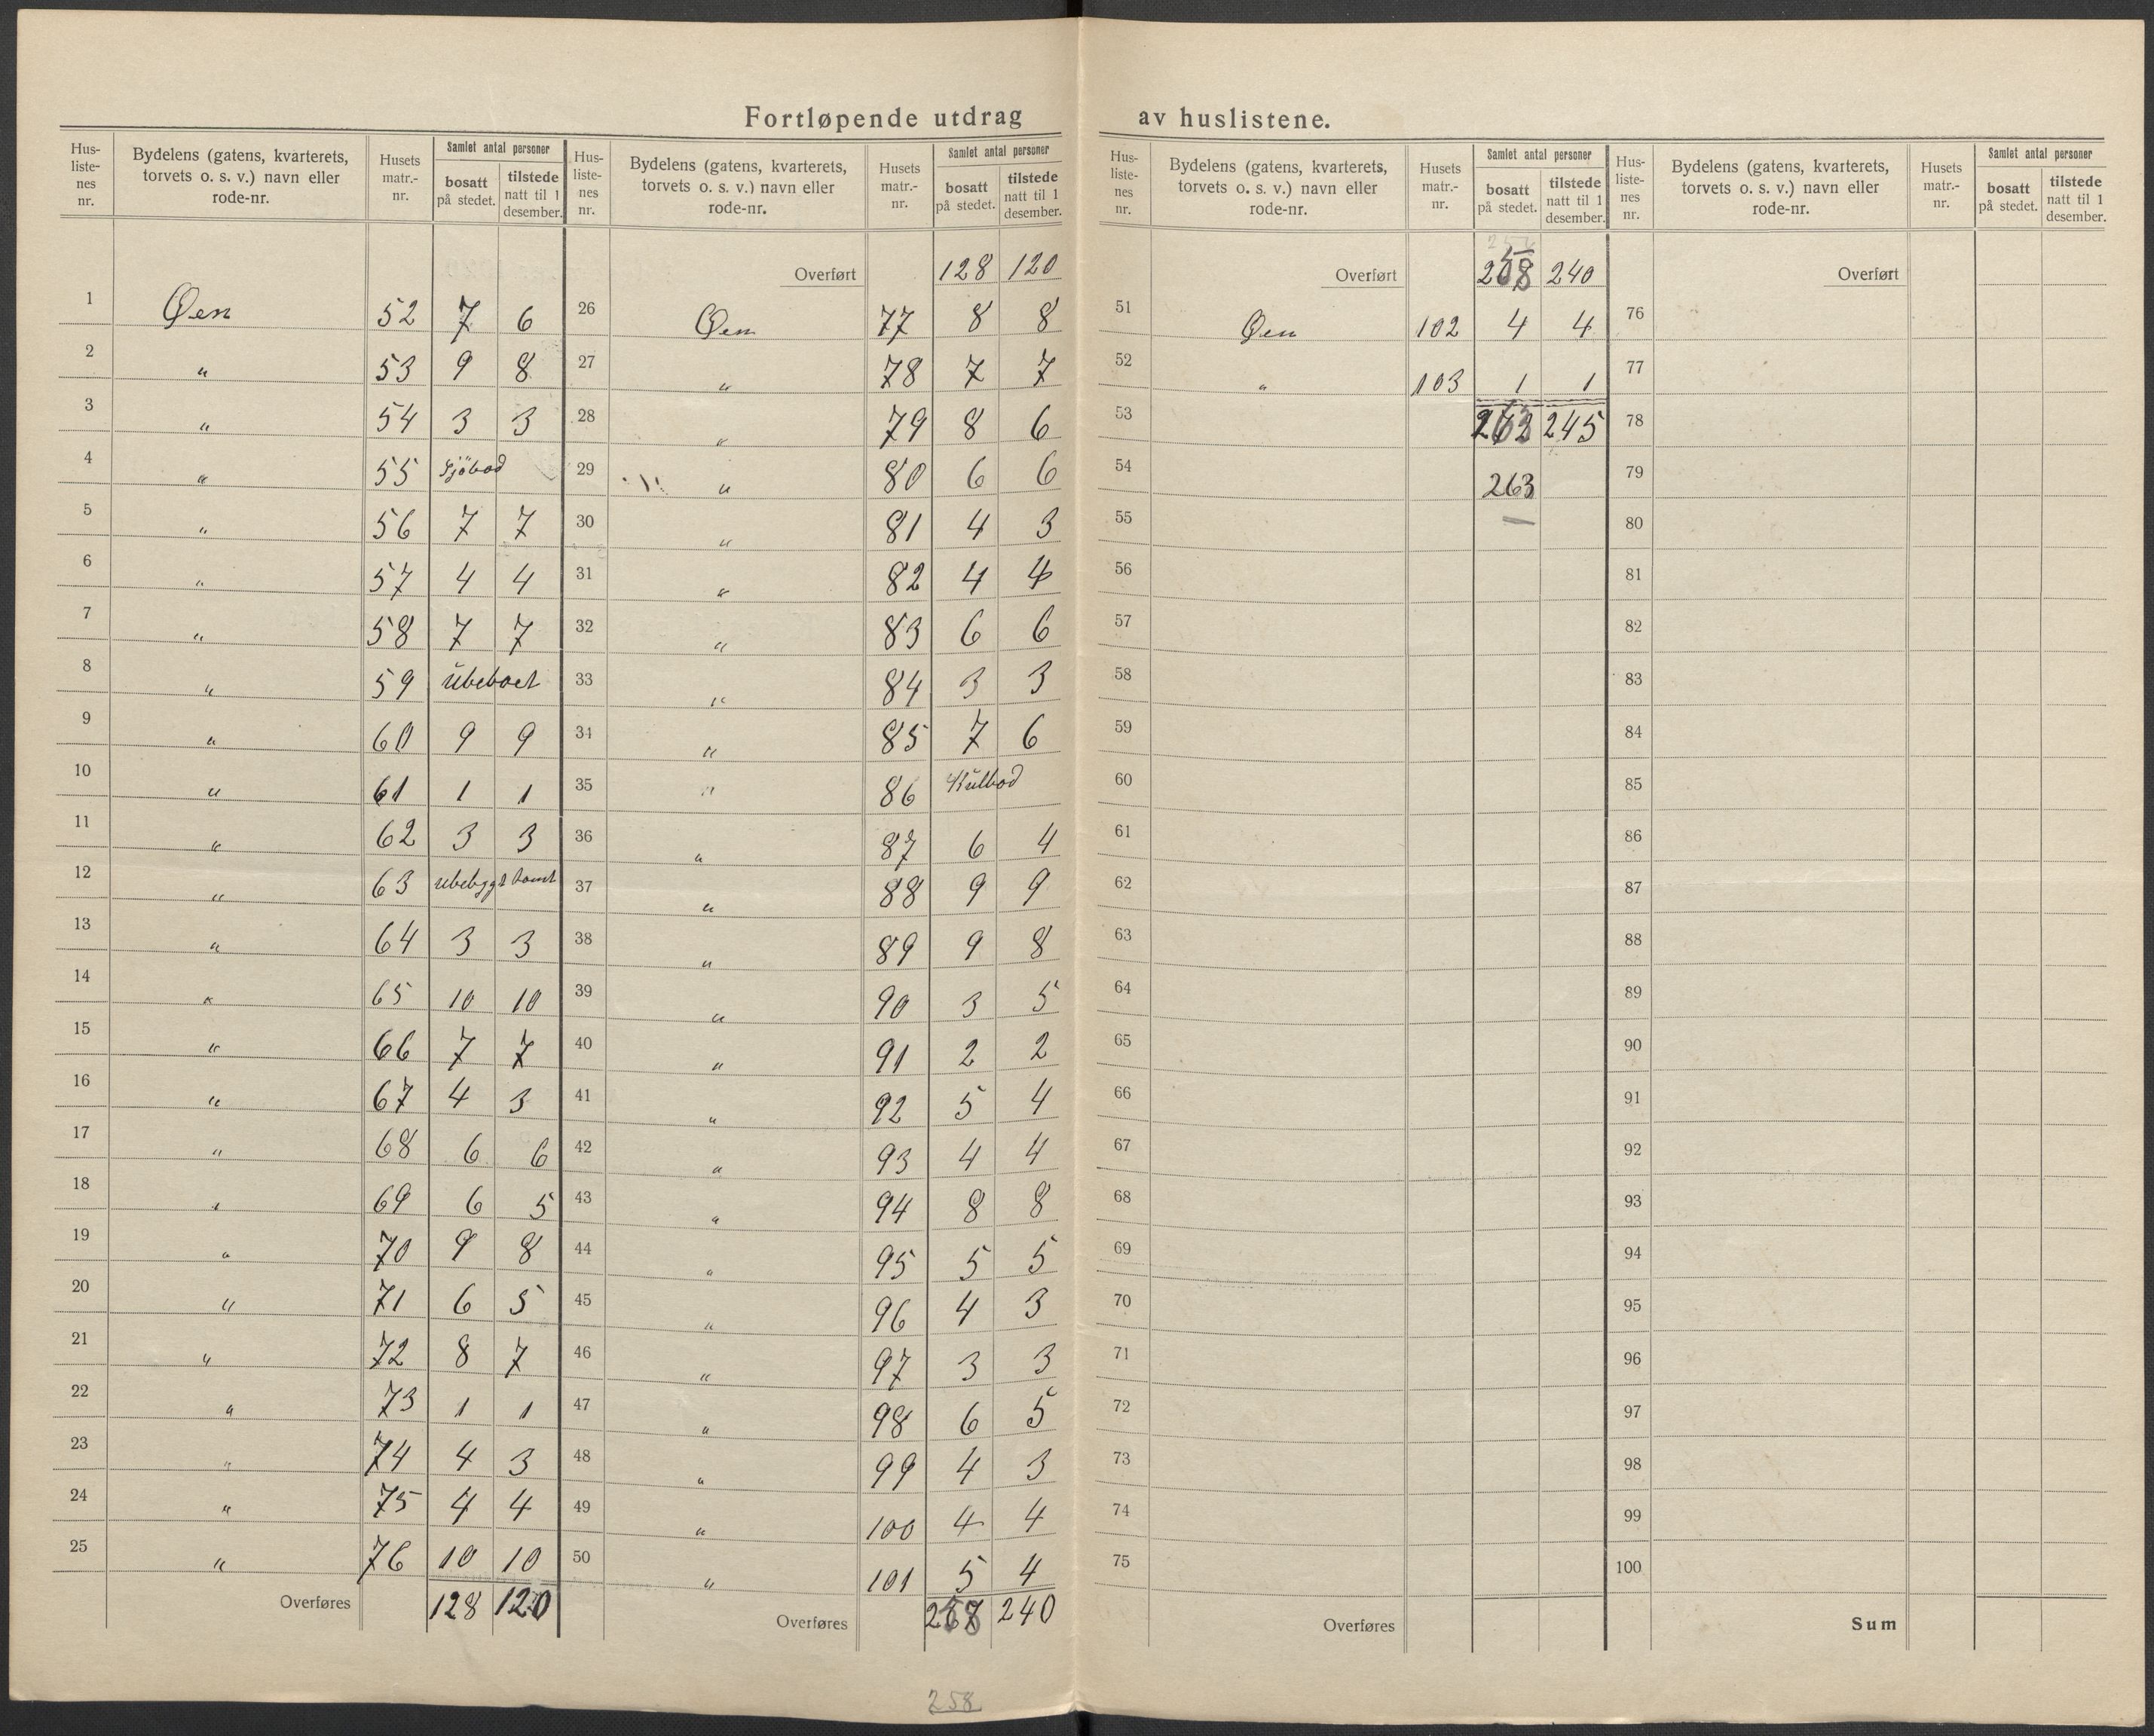 Fortløpende utdrag av huslistene.
Hus-listenes nr. | Bydelens (gatens, kvarterets, torvets o. s. v.) navn eller rode-nr. | Husets matr.-nr. | Samlet antal personer bosatt på stedet. | tilstede natt til 1 desember.
1 Øen 52 7 6
2 " 53 9 8
3 " 54 3 3
4 " 55 Sjöbod
5 " 56 7 7
6 " 57 4 4
7 " 58 7 7
8 " 59 ubeboet
9 " 60 9 9
10 " 61 1 1
11 " 62 3 3
12 " 63 ubebygt tomt
13 " 64 3 3
14 " 65 10 10
15 " 66 7 7
16 " 67 4 3
17 " 68 6 6
18 " 69 6 5
19 " 70 9 8
20 " 71 6 5
21 " 72 8 7
22 " 73 1 1
23 " 74 4 3
24 " 75 4 4
25 " 76 10 10
Overføres 128 120
Hus-listenes nr. | Bydelens (gatens, kvarterets, torvets o. s. v.) navn eller rode-nr. | Husets matr.-nr. | Samlet antal personer bosatt på stedet. | tilstede natt til 1 desember.
Overført 128 120
26 Øen 77 8 8
27 " 78 7 7
28 " 79 8 6
29 " 80 6 6
30 " 81 4 3
31 " 82 4 4
32 " 83 6 6
33 " 84 3 3
34 " 85 7 6
35 " 86 Kulbod
36 " 87 6 4
37 " 88 9 9
38 " 89 9 8
39 " 90 3 5
40 " 91 2 2
41 " 92 5 4
42 " 93 4 4
43 " 94 8 8
44 " 95 5 5
45 " 96 4 3
46 " 97 3 3
47 " 98 6 5
48 " 99 4 3
49 " 100 4 4
50 " 101 5 4
Overføres 240
258
Hus-listenes nr. | Bydelens (gatens, kvarterets, torvets o. s. v.) navn eller rode-nr. | Husets matr.-nr. | Samlet antal personer bosatt på stedet. | tilstede natt til 1 desember.
Overført 258 240
51 Øen 102 4 4
52 " 103 1 1
53 245
54 263
55
56
57
58
59
60
61
62
63
64
65
66
67
68
69
70
71
72
73
74
75
Overføres
Hus-listenes nr. | Bydelens (gatens, kvarterets, torvets o. s. v.) navn eller rode-nr. | Husets matr.-nr. | Samlet antal personer bosatt på stedet. | tilstede natt til 1 desember.
Overført
76
77
78
79
80
81
82
83
84
85
86
87
88
89
90
91
92
93
94
95
96
97
98
99
100
Sum